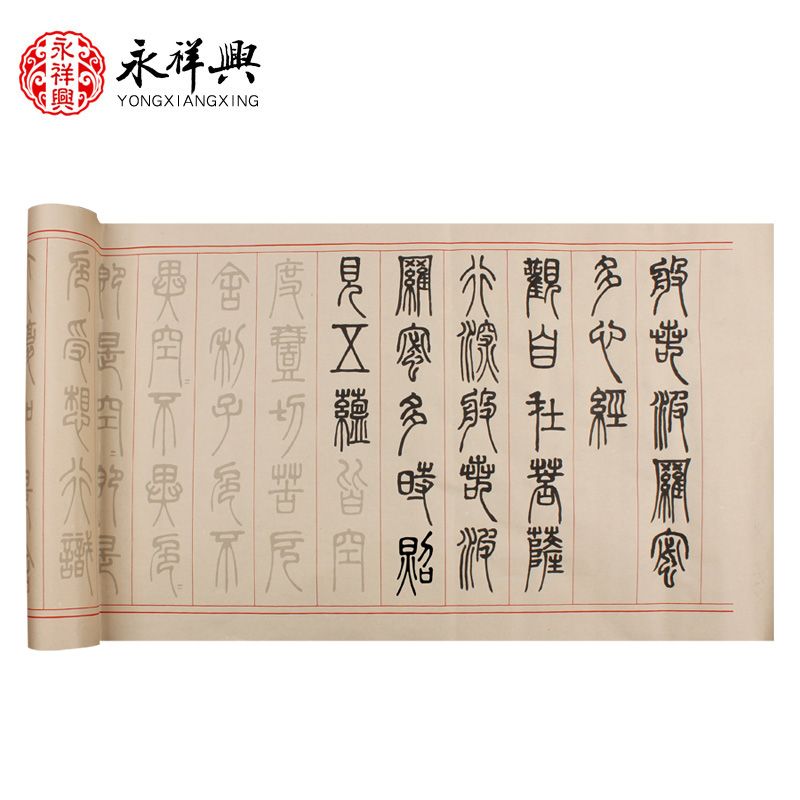 永祥興
永祥興
YONGXIANGXING
般若波羅蜜
多心經
觀自在菩薩
行深般若波
羅蜜多時照
見五蘊皆空
度壹切苦厄
舍利子色不
異空〻不異色〻
即是空〻即是
色受想行識